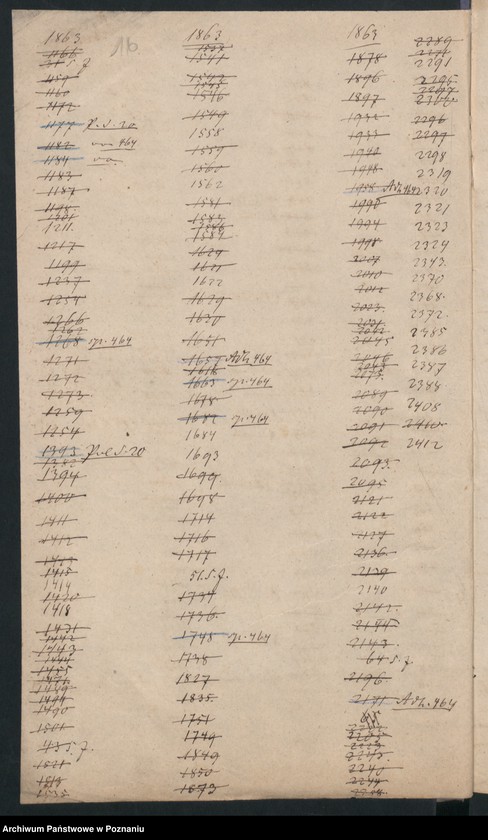 1863
16
1166
31 S. J.
1159
1160
1172
1177 P. S. 20
1182 464
1184
1183
1187
1198
1201
1211
1217
1199
1237
1254
1266
1262
1268 sp. 464
1271
1272
1273
1259
1254
1393 P. S. 20
1382
1394
1400
1411
1412
1413
1415
1414
1420
1418
1431
1442
1443
1444
1455
1459
1494
1490
1501
43 S. J.
1521
1518
1535
1863
1533
1541
1542
1545
1546
1549
1558
1559
1560
1562
1581
1582
1586
1587
1629
1621
1622
1629
1630
1651
1657 Adh. 464
1616
1663 sp. 464
1678
1682 sp. 464
1684
1693
1699
1698
1714
1716
1717
51. S. J.
1734
1736
1748 sp. 464
1738
1827
1835
1751
1749
1849
1850
1673
1863
1878
1896
1897
1932
1933
1940
1948
1958 Adh. 464
1990
1994
1998
2007
2010
2012
2023
2021
2042
2045
2046
2043
2073
2089
2090
2091
2092
2093
2095
2121
2122
2127
2136
2139
2140
2142
2144
2143
64 S. J.
2196
2171 Adh. 464
2235
2223
2213
2240
2244
2289
2271
2291
2295
2296
2297
2298
2319
2320
2321
2323
2324
2343
2370
2368
2372
2385
2386
2387
2388
2408
2410
2412
Archiwum Państwowe w Poznaniu